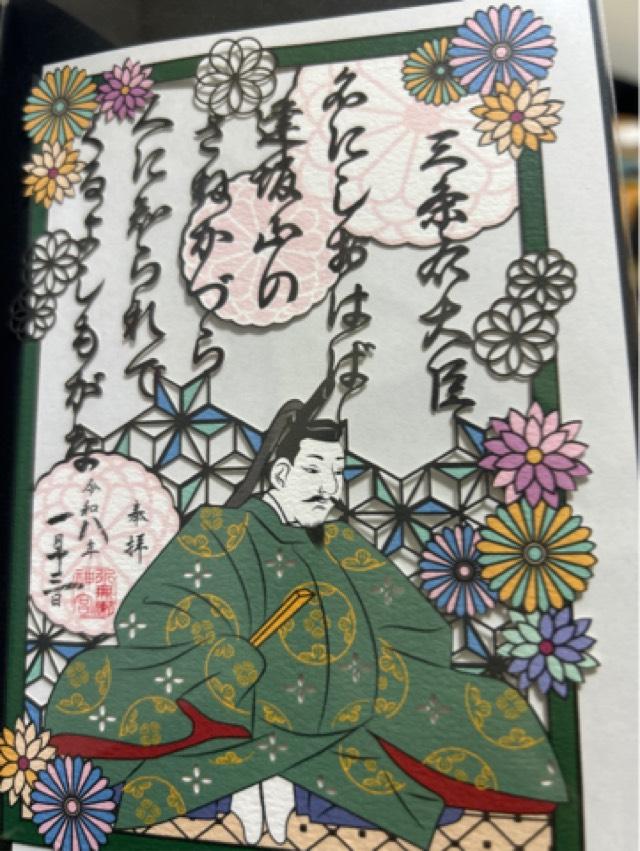 三条右大臣
名にしおはば
逢坂山の
さねかづら
人に知られで
くるよしもがな
奉拝
令和八年
一月十三日